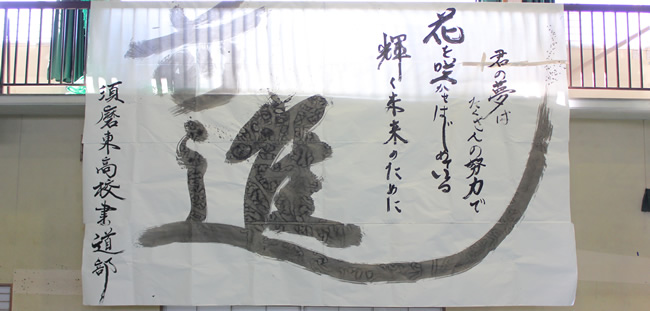 君の夢は
たくさんの努力で
花を咲かせはじめている
輝く未来のために
進
須磨東高校書道部